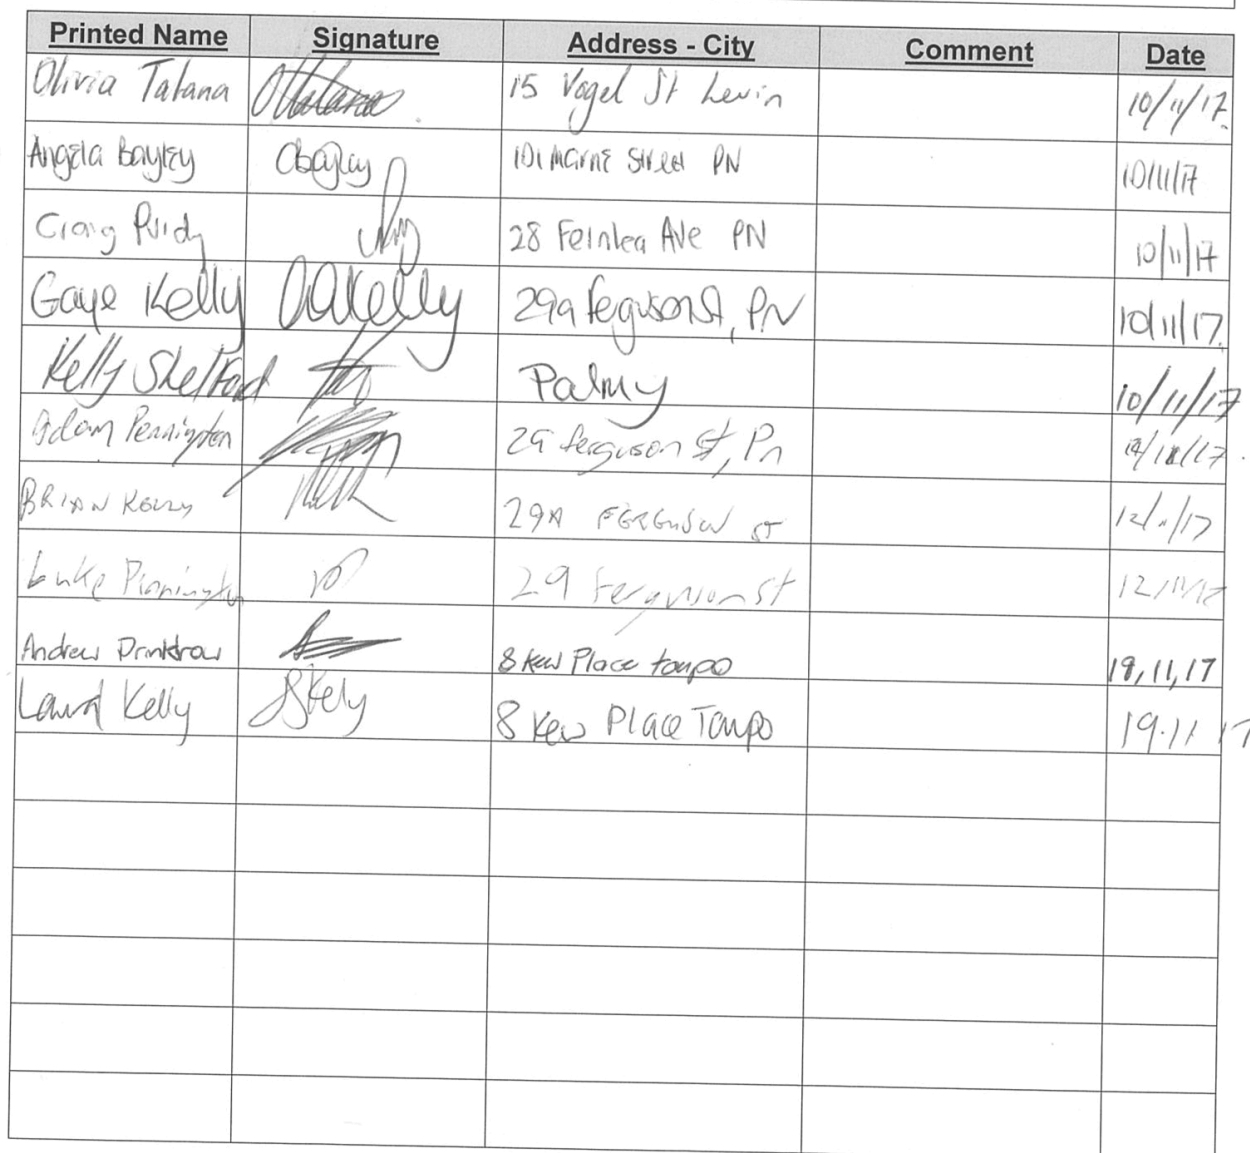 Printed Name Signature Address - City Comment Date
Olivia Tatana OTatana 15 Vogel St Levin 10/11/17.
Angela Bayley Abayley 101 Marne Street PN 10/11/17
Craig Purdy 28 Fernlea Ave PN 10/11/17
Gaye Kelly GAKelly 29a Ferguson St, PN 10/11/17.
Kelly Shelford Palmy 10/11/17
Adam Pennington 29 ferguson st, Pn /17
BRIAN KELLY 29A FERGUSON ST 12/11/17
Luke Pinnington 29 Ferguson st 12/11/17
Andrew Drinkrow 8 Kew Place taupo 19,11,17
Kelly Kelly 8 Kew Place Taupo 19.11 17